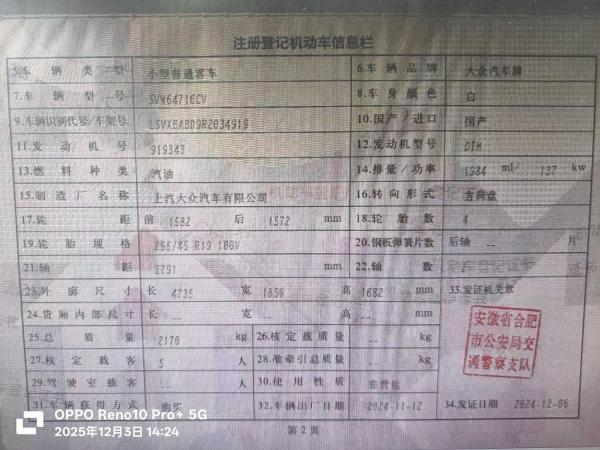 注册登记机动车信息栏
5.车辆类型 小型普通客车 6.车辆品牌 大众汽车牌
7.车辆型号 SVW64716CV 8.车身颜色 白
9.车辆识别代号/车架号 LSVXEABD9R2034919 10.国产/进口 国产
11.发动机号 919343 12.发动机型号 DTH
13.燃料种类 汽油 14.排量/功率 1984 ml/ 137 kw
15.制造厂名称 上汽大众汽车有限公司 16.转向形式 方向盘
17.轮距 前 1582 后 1572 mm 18.轮胎数 4
19.轮胎规格 255/45 R19 100V 20.钢板弹簧片数 后轴 -- 片
21.轴距 2791 mm 22.轴数 2
23.外廓尺寸 长 4735 宽 1859 高 1682 mm 33.发证机关章
24.货厢内部尺寸 长 -- 宽 -- 高 -- mm
25.总质量 2170 kg 26.核定载质量 -- kg
27.核定载客 5 人 28.准牵引总质量 -- kg
29.驾驶室载客 -- 人 30.使用性质 非营运
安徽省合肥
市公安局交
通警察支队
31.车辆获得方式 购买 32.车辆出厂日期 2024-11-12 34.发证日期 2024-12-06
第2页
OPPO Reno10 Pro+ 5G
2025年12月3日 14:24